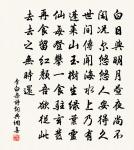 白日與明月晝夜尚不
閑況爾悠悠人安得久
世間傳聞海水上乃有
蓬萊山玉樹生綠葉靈
仙每登攀一食駐玄髮
再食留紅顏吾欲從此
去去之無時還
李白雜詩